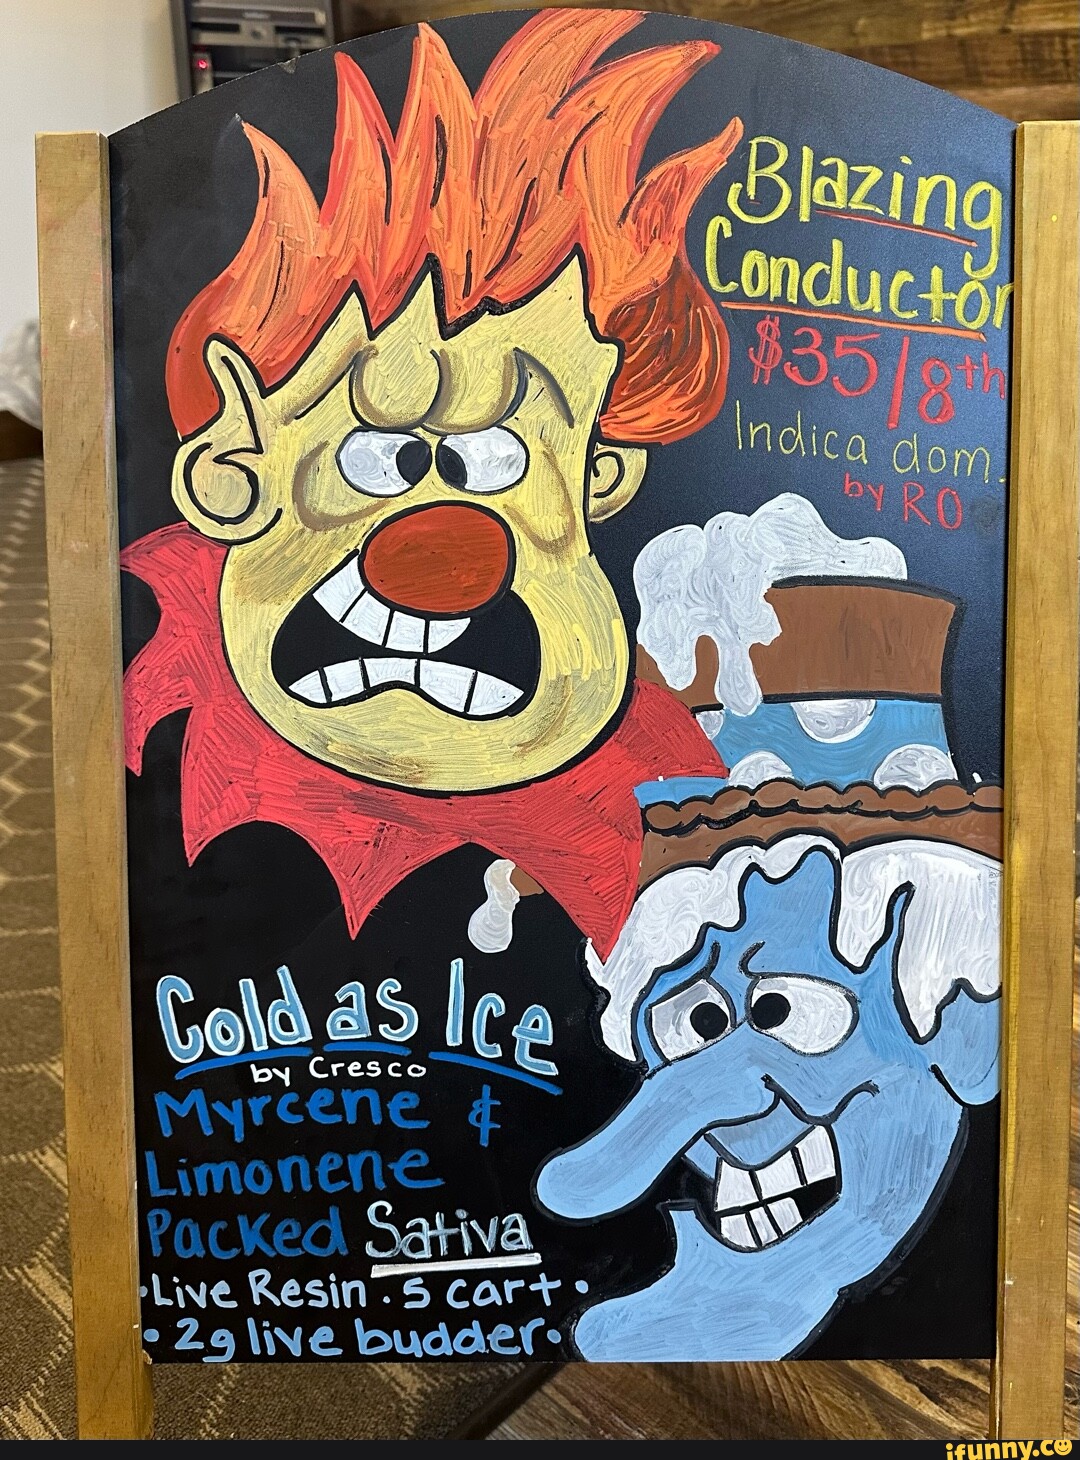 Blazing
Conductor
$35/8th
Indica dom.
by RO
Cold as Ice
by Cresco
Myrcene &
Limonene
Packed Sativa
•Live Resin .5 cart•
•2g live budder•
ifunny.co